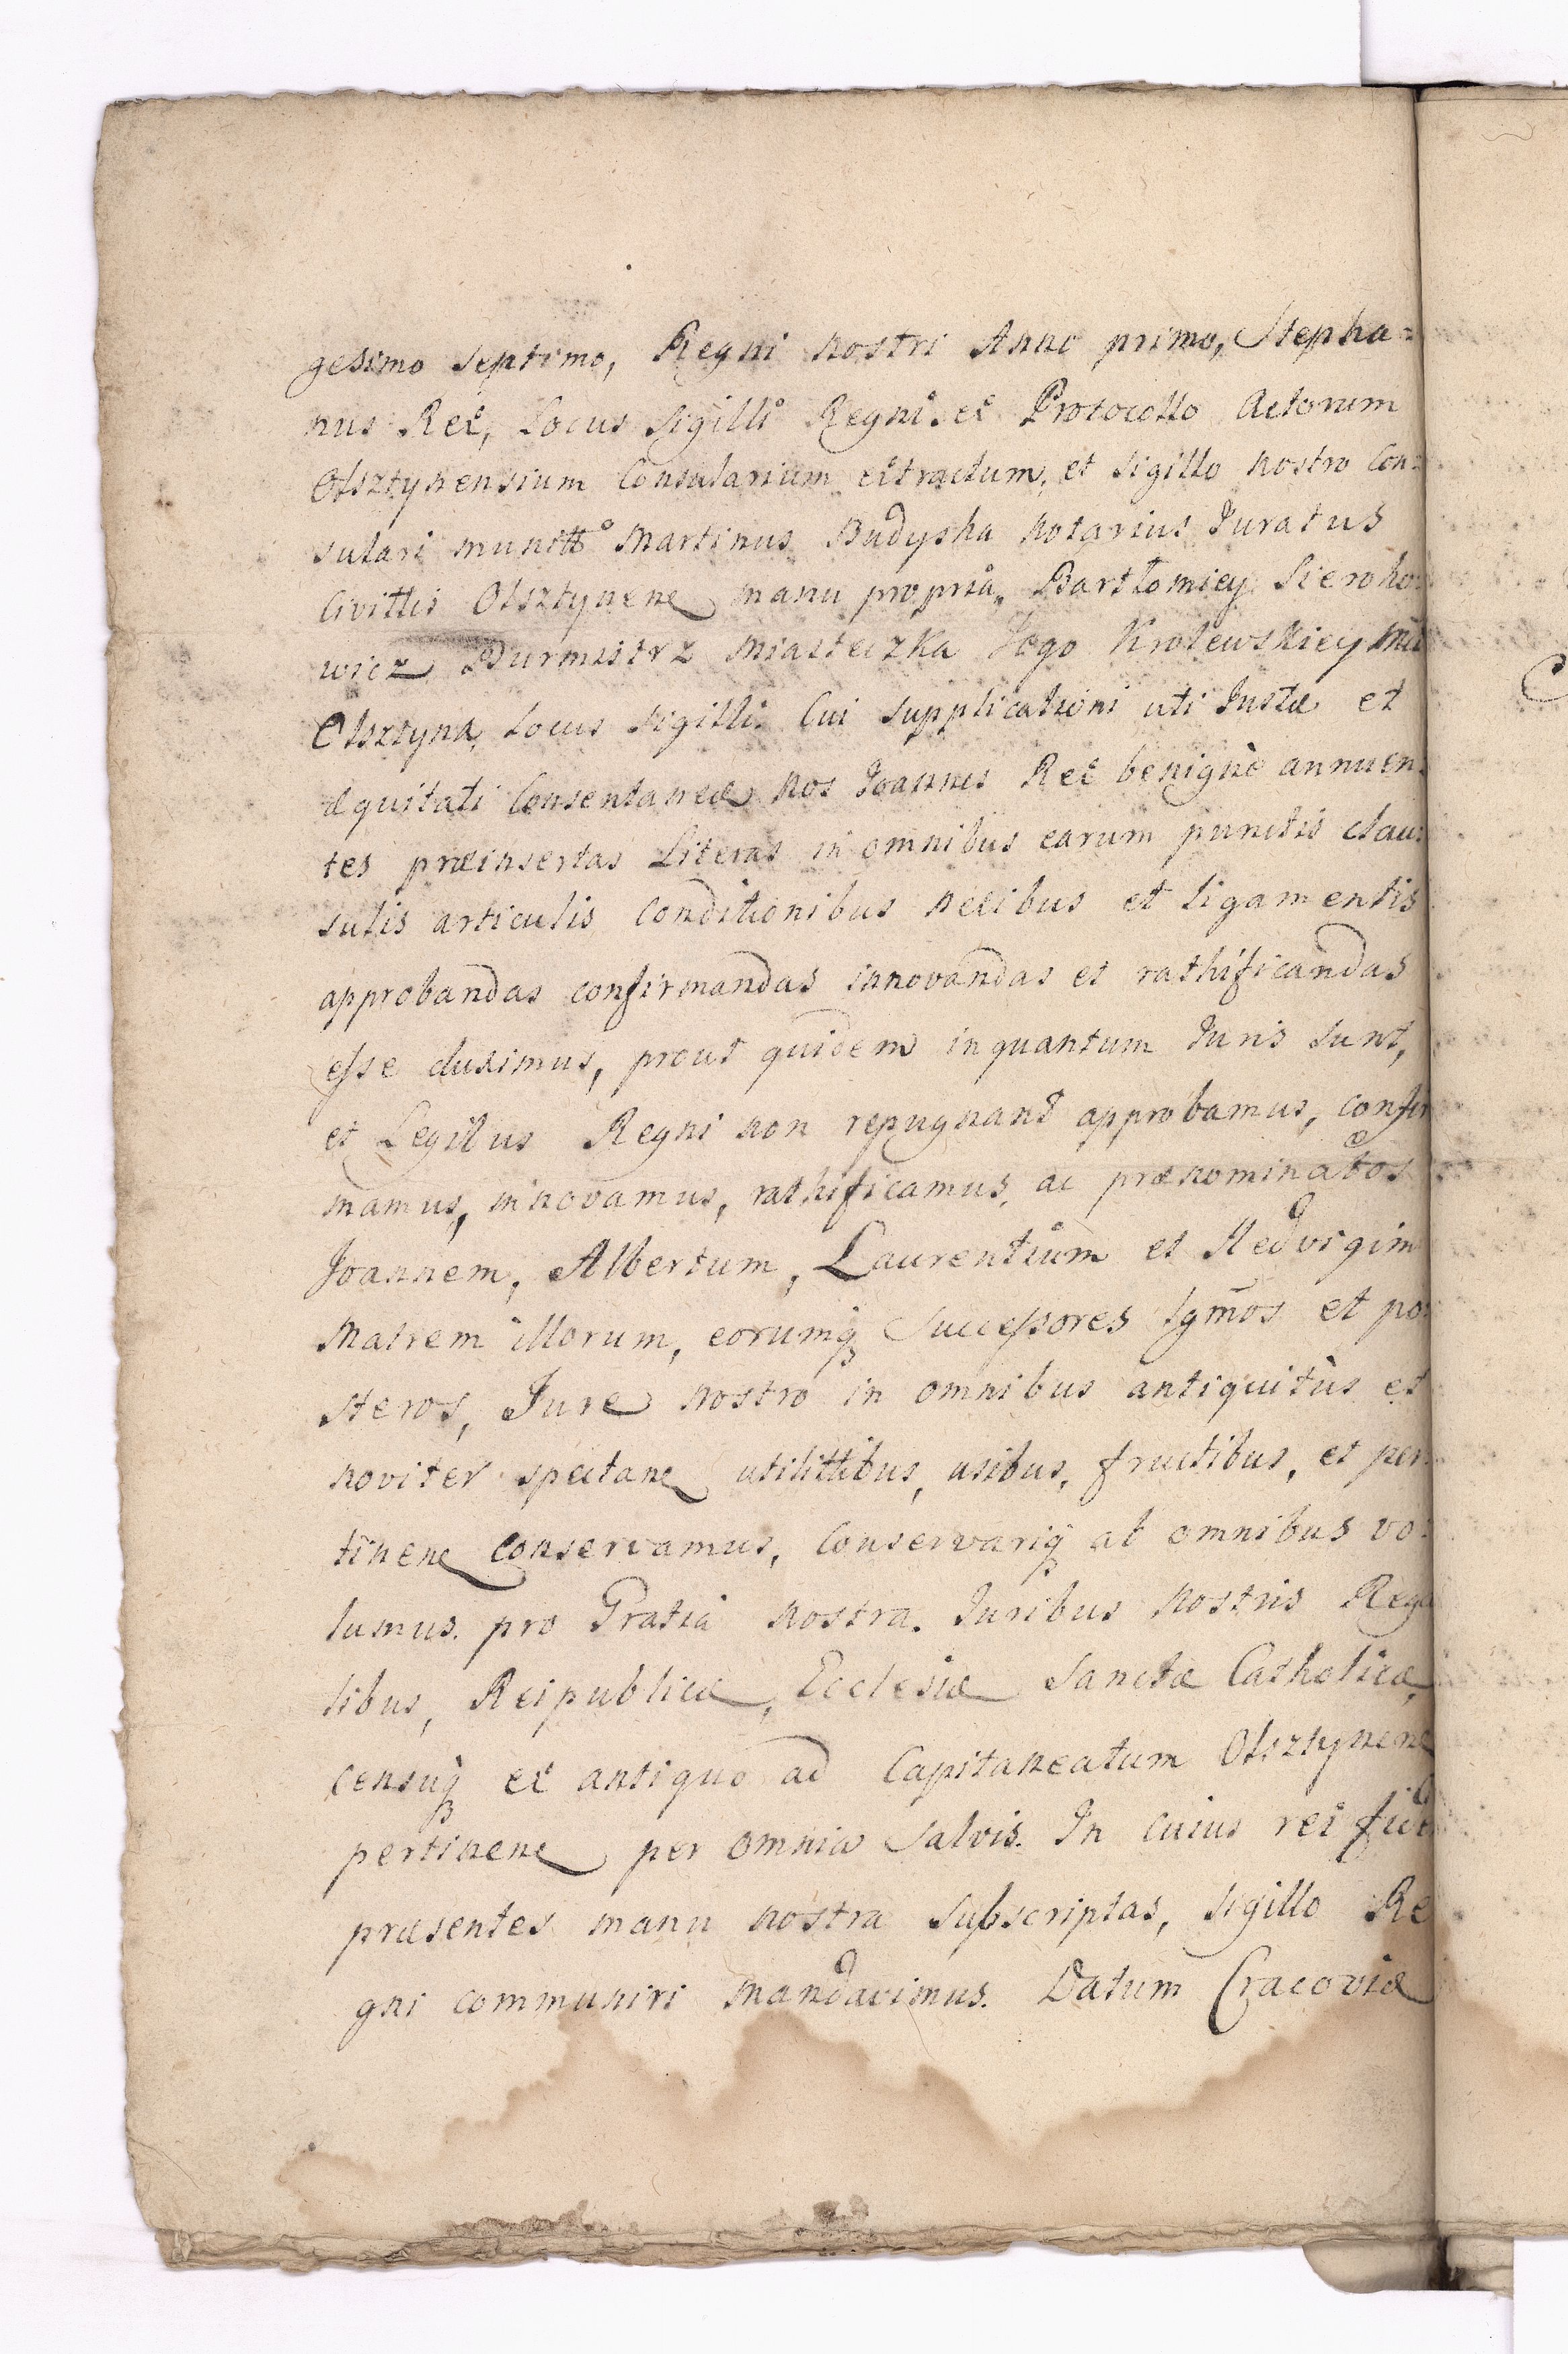 gesimo septimo, Regni nostri Anno primo, Stepha=
nus Rex, Locus Sigilli Regni. ex Protocollo Actorum
Olsztynensium Consularium extractum, et Sigillo nostro Con=
sulari munitt Martinus Budyska Notarius Juratus
Civittis Olsztynen manu propria, Bartłomiey Sieroko=
wicz Burmistrz Miasteczka Jego Krolewskiey Mci
Olsztyna, Locus Sigilli. Cui supplicationi uti Justæ et
æquitati Consentaneæ Nos Joannes Rex benignè annuen=
tes præinsertas Literas in omnibus earum punctis clau=
sulis articulis Conditionibus nexibus et ligamentis
approbandas confirmandas innovandas et rathificandas
esse duximus, prout quidem inquantum Juris sunt,
et Legibus Regni non repugnant approbamus, confir
mamus, innovamus, rathificamus, ac prænominatos
Joannem, Albertum, Laurentium et Hedvigim
Matrem illorum, eorumq Successores Lgmos et po=
steros, Jure nostro in omnibus antiquitùs et
noviter spectan utilittibus, usibus, fructibus, et per=
tinen conservamus, Conservariq ab omnibus vo=
lumus. pro Gratia nostra. Juribus nostris Rega
libus, Reipublicæ, Ecclesiæ Sanctæ Catholicæ,
Censuq ex antiquo ad Capitaneatum Olsztynen
pertinen per omnia Salvis. In cuius rei fidē
præsentes manu nostra Subscriptas, Sigillo Re
gni communiri mandavimus. Datum Cracoviæ